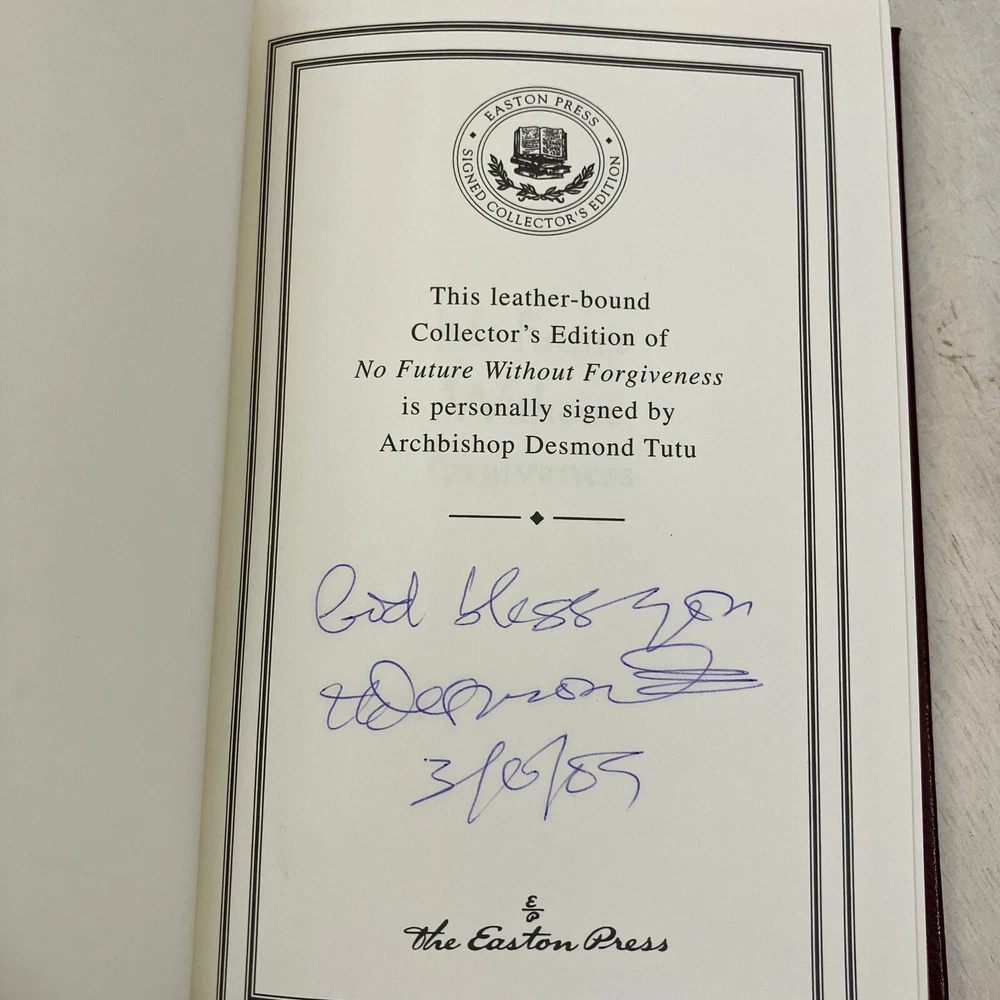 EASTON PRESS
SIGNED COLLECTOR'S EDITION
This leather-bound
Collector's Edition of
No Future Without Forgiveness
is personally signed by
Archbishop Desmond Tutu
God bless you
+Desmond
E
P
The Easton Press